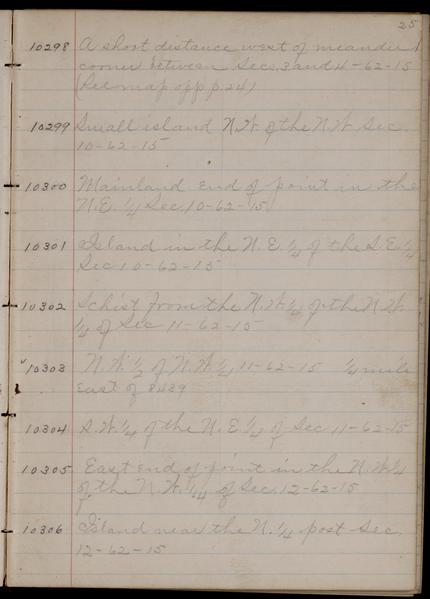 25
10298 A short distance west of meander
corner between Secs. 3 and 4-62-15
(See map opp p. 24)
10299 Small island N.W. of the N.W. Sec
10-62-15
10300 Mainland end of point in the
N.E. 1/4 Sec. 10-62-15
10301 Island in the N.E. 1/4 of the S.E. 1/4
Sec 10-62-15
10302 Schist from the N.W. 1/4 of the N.W.
1/4 of Sec 11-62-15
10303 N.W. 1/2 of N.W. 1/4, 11-62-15 1/4 mile
East of 8489
10304 S.W. 1/4 of the N.E. 1/4 of Sec 11-62-15
10305 East end of point in the N.W. 1/4
of the N.W. 1/4 of Sec. 12-62-15
10306 Island near the N. 1/4 post Sec.
12-62-15